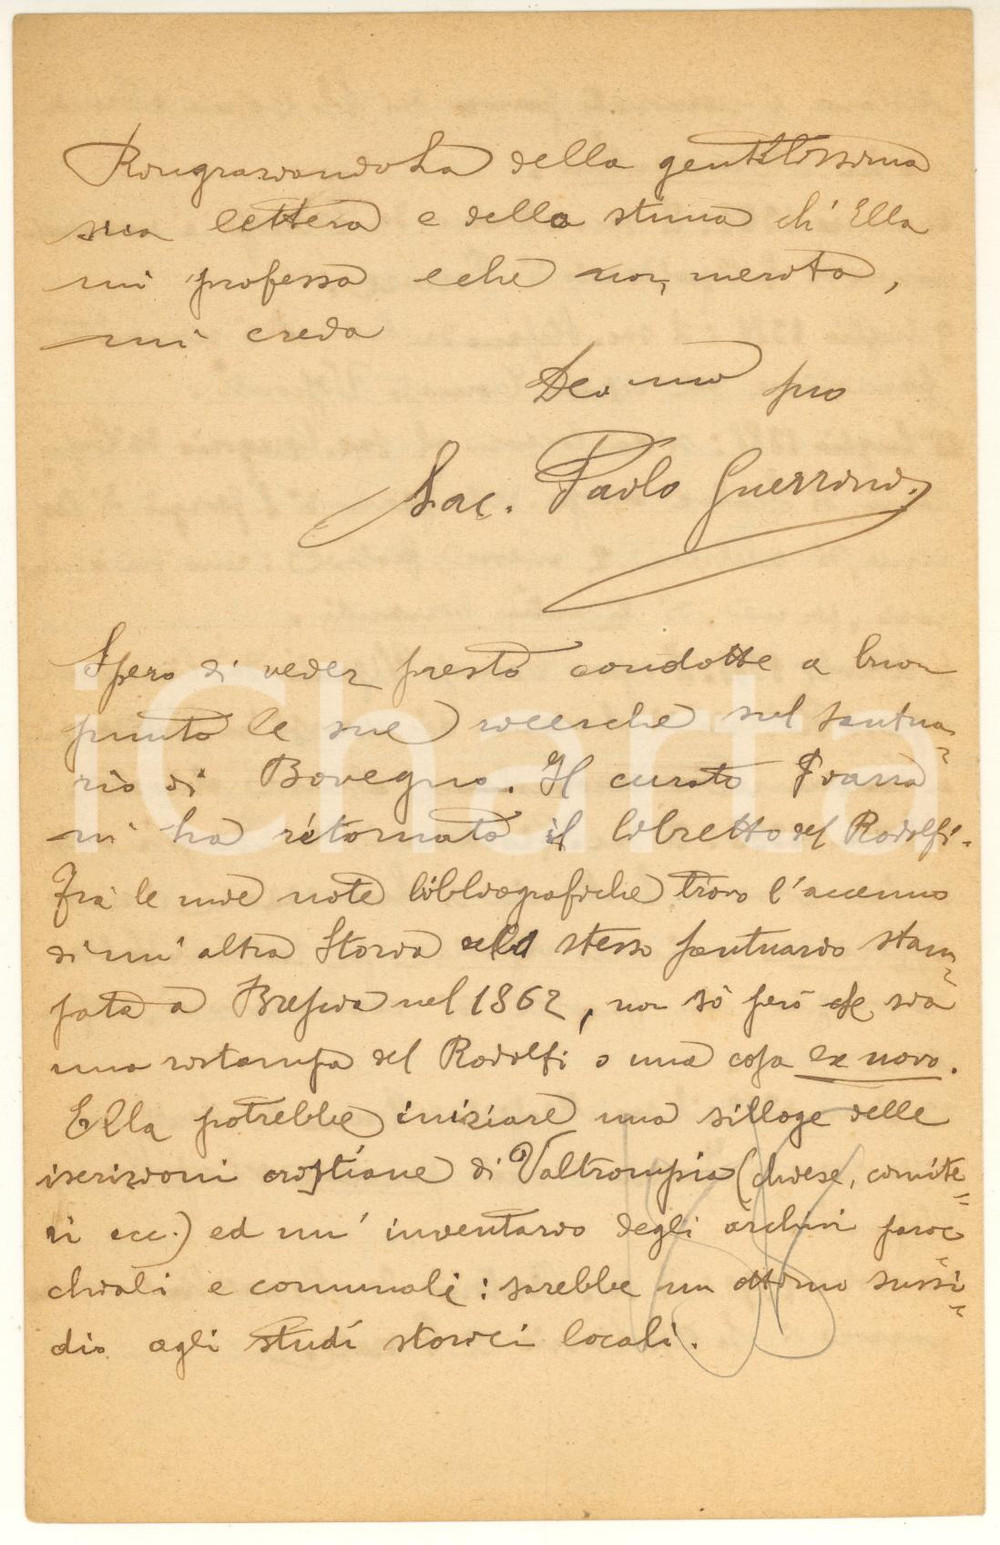 RingraziandoLa della gentilissima
sua lettera e della stima ch' Ella
mi professa e che non merita,
mi creda
Dev mo suo
Sac. Paolo Guerrini.
Spero di veder presto condotte a buon
punto le sue ricerche sul santua=
rio di Bovegno. Il curato
mi ha ritornato il libretto del Rodolfi.
Fra le mie note bibliografiche trovo l'accenno
di un' altra Storia dello stesso santuario stam=
pata a Brescia nel 1862, non sò però se sia
una ristampa del Rodolfi o una cosa ex novo.
Ella potrebbe iniziare una silloge delle
iscrizioni cristiane di Valtrompia (chiese, cimite=
ri ecc.) ed un' inventario degli archivi paroc=
chiali e comunali: sarebbe un ottimo sussi=
dio agli studi storici locali.
iCharta